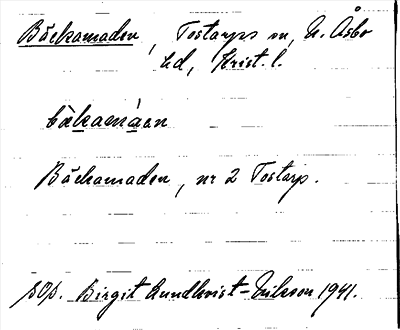 Bäckamaden, Tostarps sn, N. Åsbo
hd, Krist. l.
bäkamáan
Bäckamaden, nr 2 Tostarp.
sop. Birgit Lundkvist-Nilsson 1941.